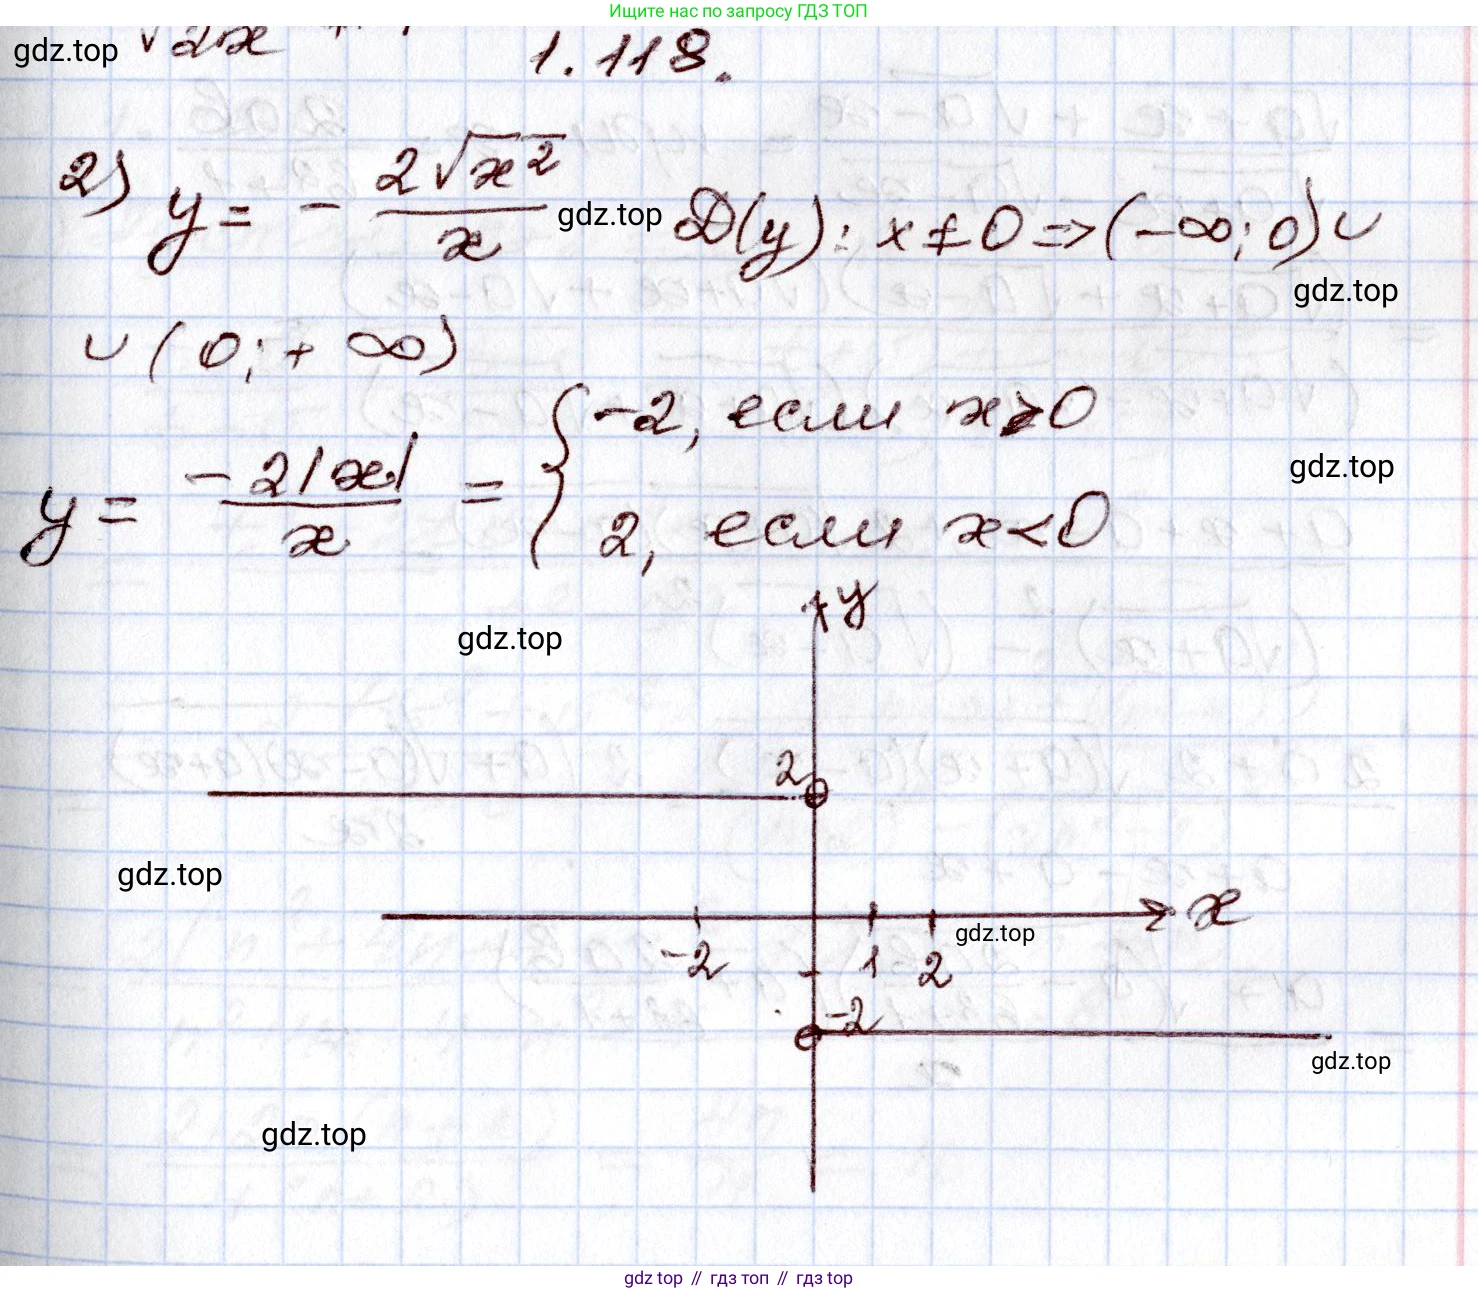 Ищите нас по запросу ГДЗ ТОП
gdz.top
√2x
1.118.
2) y = - 2√x² / x gdz.top D(y): x ≠ 0 => (-∞; 0) ∪
gdz.top
∪ (0; + ∞)
y = -2|x| / x = { -2, если x > 0
gdz.top
2, если x < 0
y
gdz.top
2
gdz.top
x
gdz.top
-2 1 2
-2
gdz.top
gdz.top
gdz top // гдз топ // гдз top